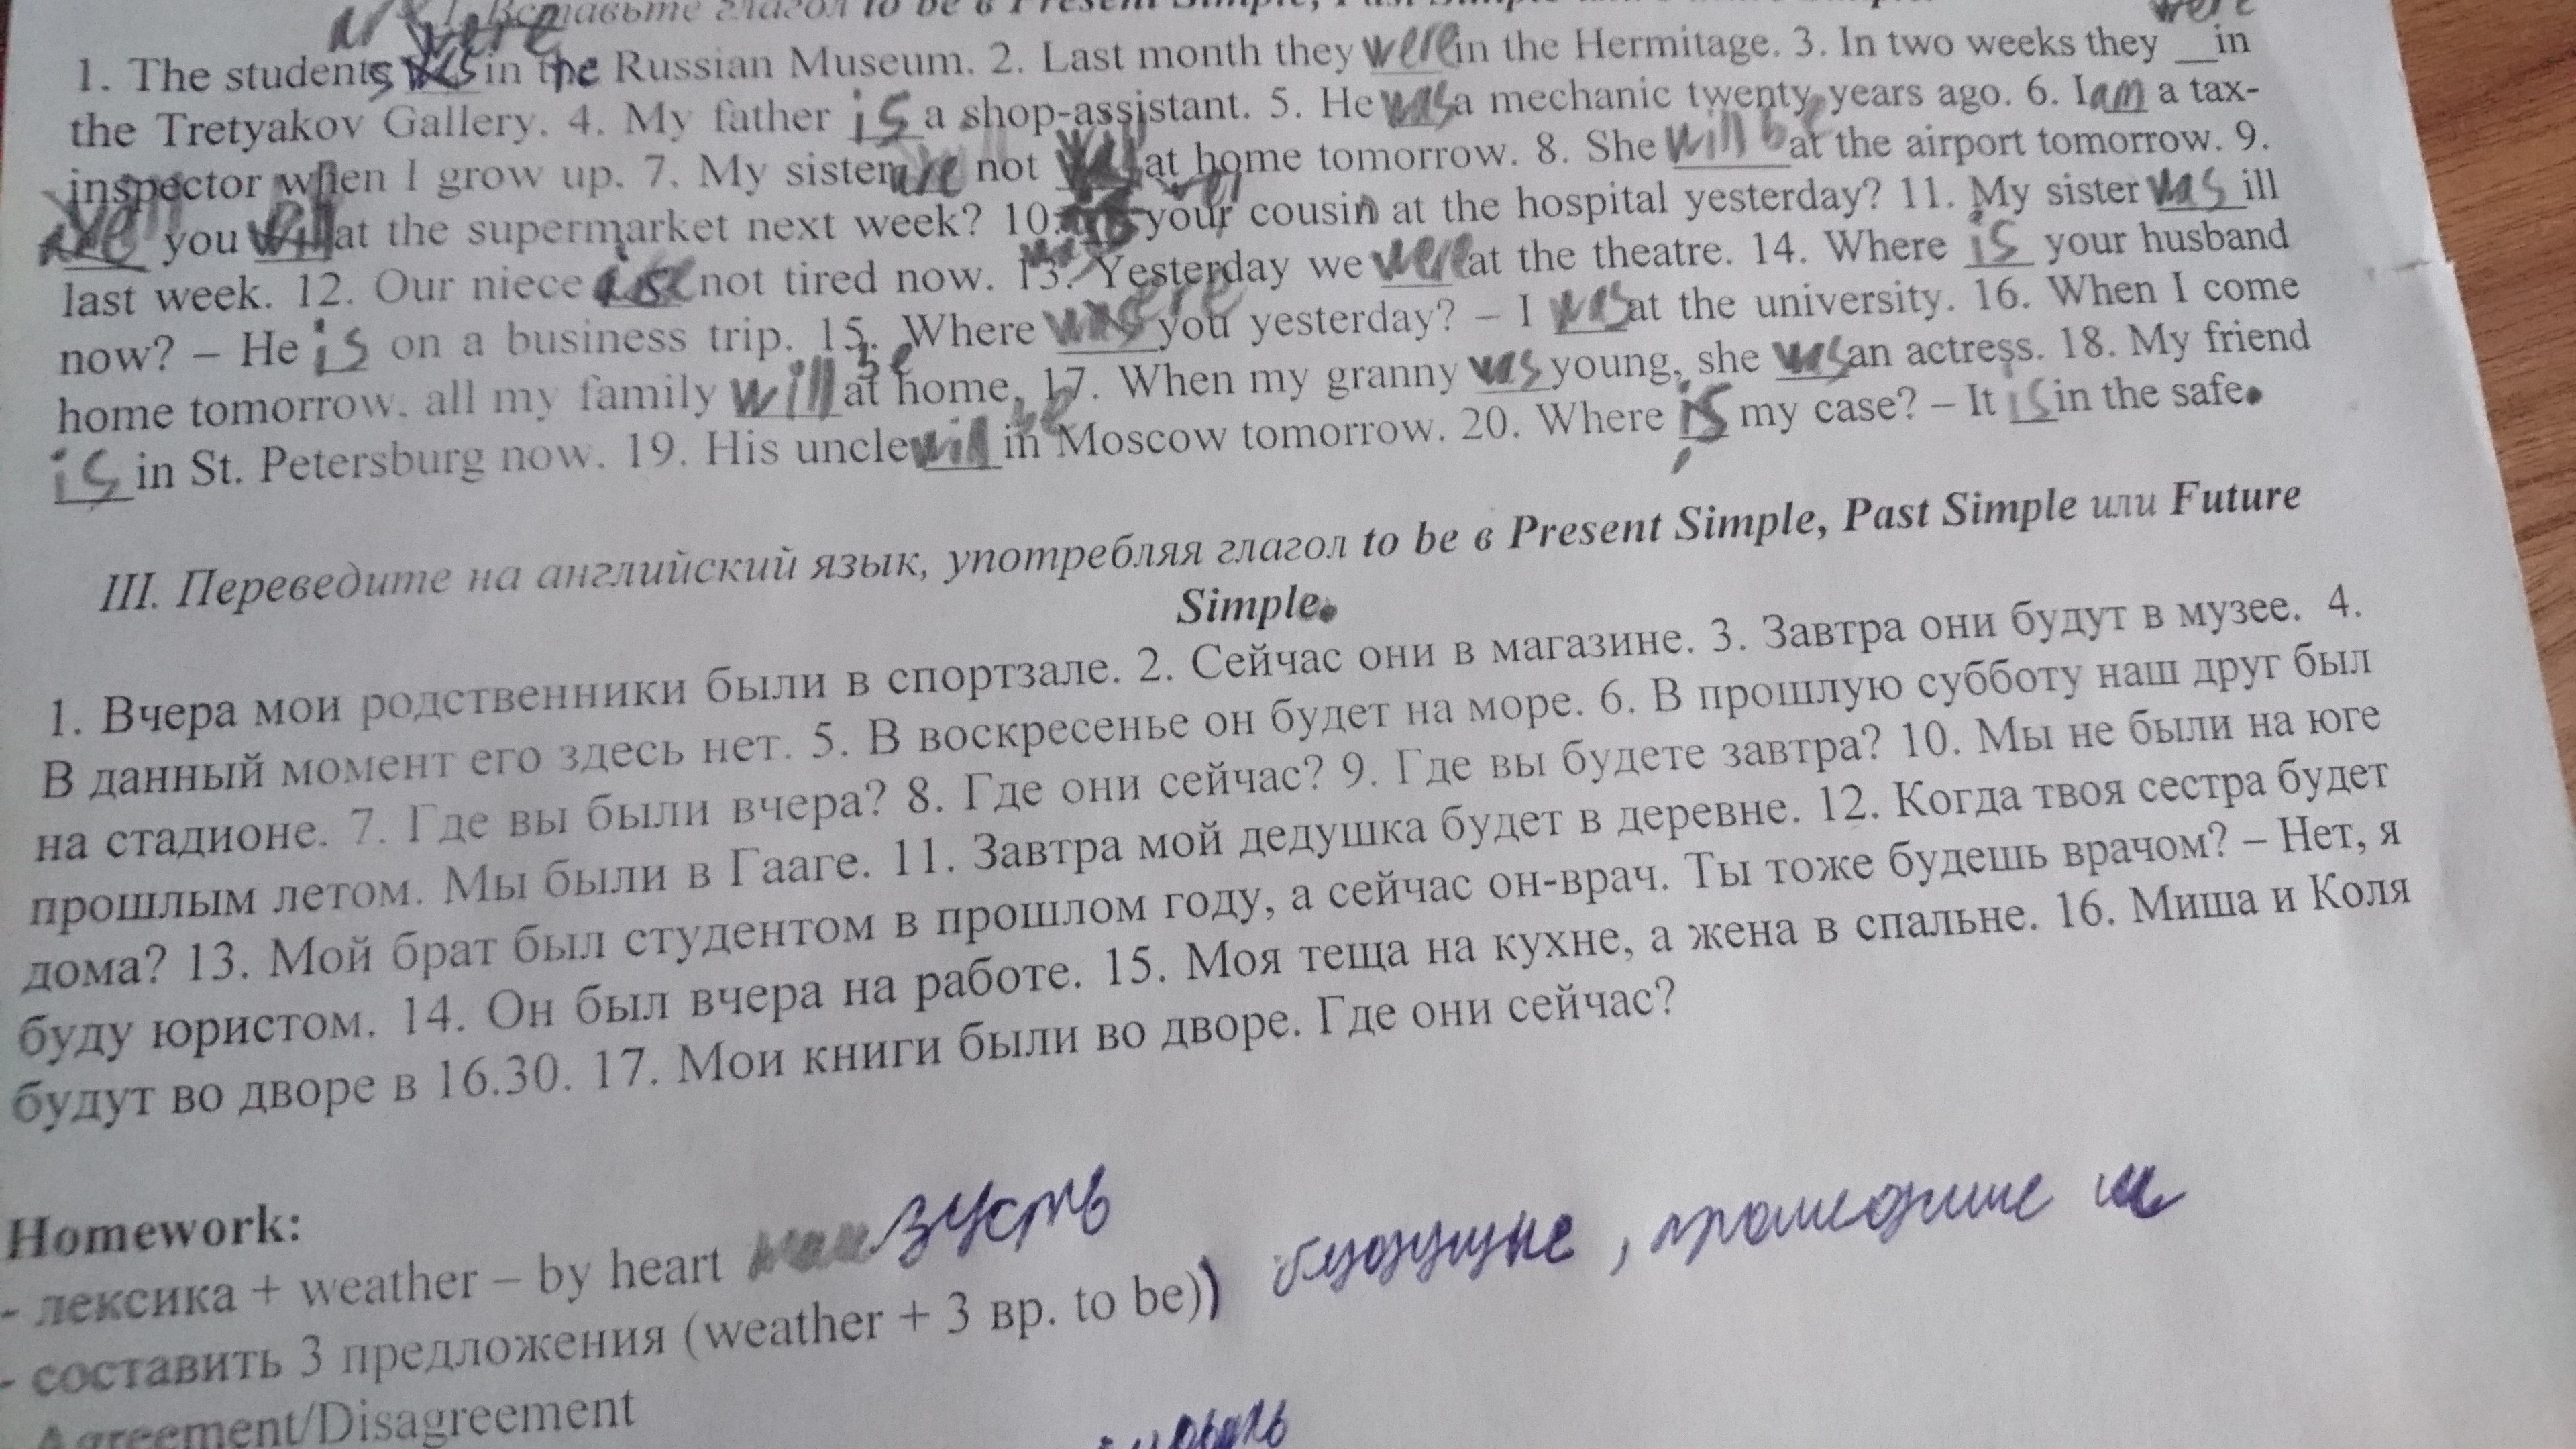 Вставьте глагол to be в Present Simple, Past Simple или Future Simple.
are were were
1. The students was in the Russian Museum. 2. Last month they were in the Hermitage. 3. In two weeks they __ in
the Tretyakov Gallery. 4. My father is a shop-assistant. 5. He was a mechanic twenty years ago. 6. I am a tax-
inspector when I grow up. 7. My sister are not will at home tomorrow. 8. She will be at the airport tomorrow. 9.
are you will at the supermarket next week? 10. your cousin at the hospital yesterday? 11. My sister was ill
last week. 12. Our niece is not tired now. 13. Yesterday we were at the theatre. 14. Where is your husband
now? – He is on a business trip. 15. Where was were you yesterday? – I was at the university. 16. When I come
home tomorrow, all my family will be at home. 17. When my granny was young, she was an actress. 18. My friend
is in St. Petersburg now. 19. His uncle will be in Moscow tomorrow. 20. Where is my case? – It is in the safe.
III. Переведите на английский язык, употребляя глагол to be в Present Simple, Past Simple или Future
Simple.
1. Вчера мои родственники были в спортзале. 2. Сейчас они в магазине. 3. Завтра они будут в музее. 4.
В данный момент его здесь нет. 5. В воскресенье он будет на море. 6. В прошлую субботу наш друг был
на стадионе. 7. Где вы были вчера? 8. Где они сейчас? 9. Где вы будете завтра? 10. Мы не были на юге
прошлым летом. Мы были в Гааге. 11. Завтра мой дедушка будет в деревне. 12. Когда твоя сестра будет
дома? 13. Мой брат был студентом в прошлом году, а сейчас он-врач. Ты тоже будешь врачом? – Нет, я
буду юристом. 14. Он был вчера на работе. 15. Моя теща на кухне, а жена в спальне. 16. Миша и Коля
будут во дворе в 16.30. 17. Мои книги были во дворе. Где они сейчас?
Homework:
- лексика + weather – by heart наизусть
- составить 3 предложения (weather + 3 вр. to be)) будущие, прошедшие и
Agreement/Disagreement